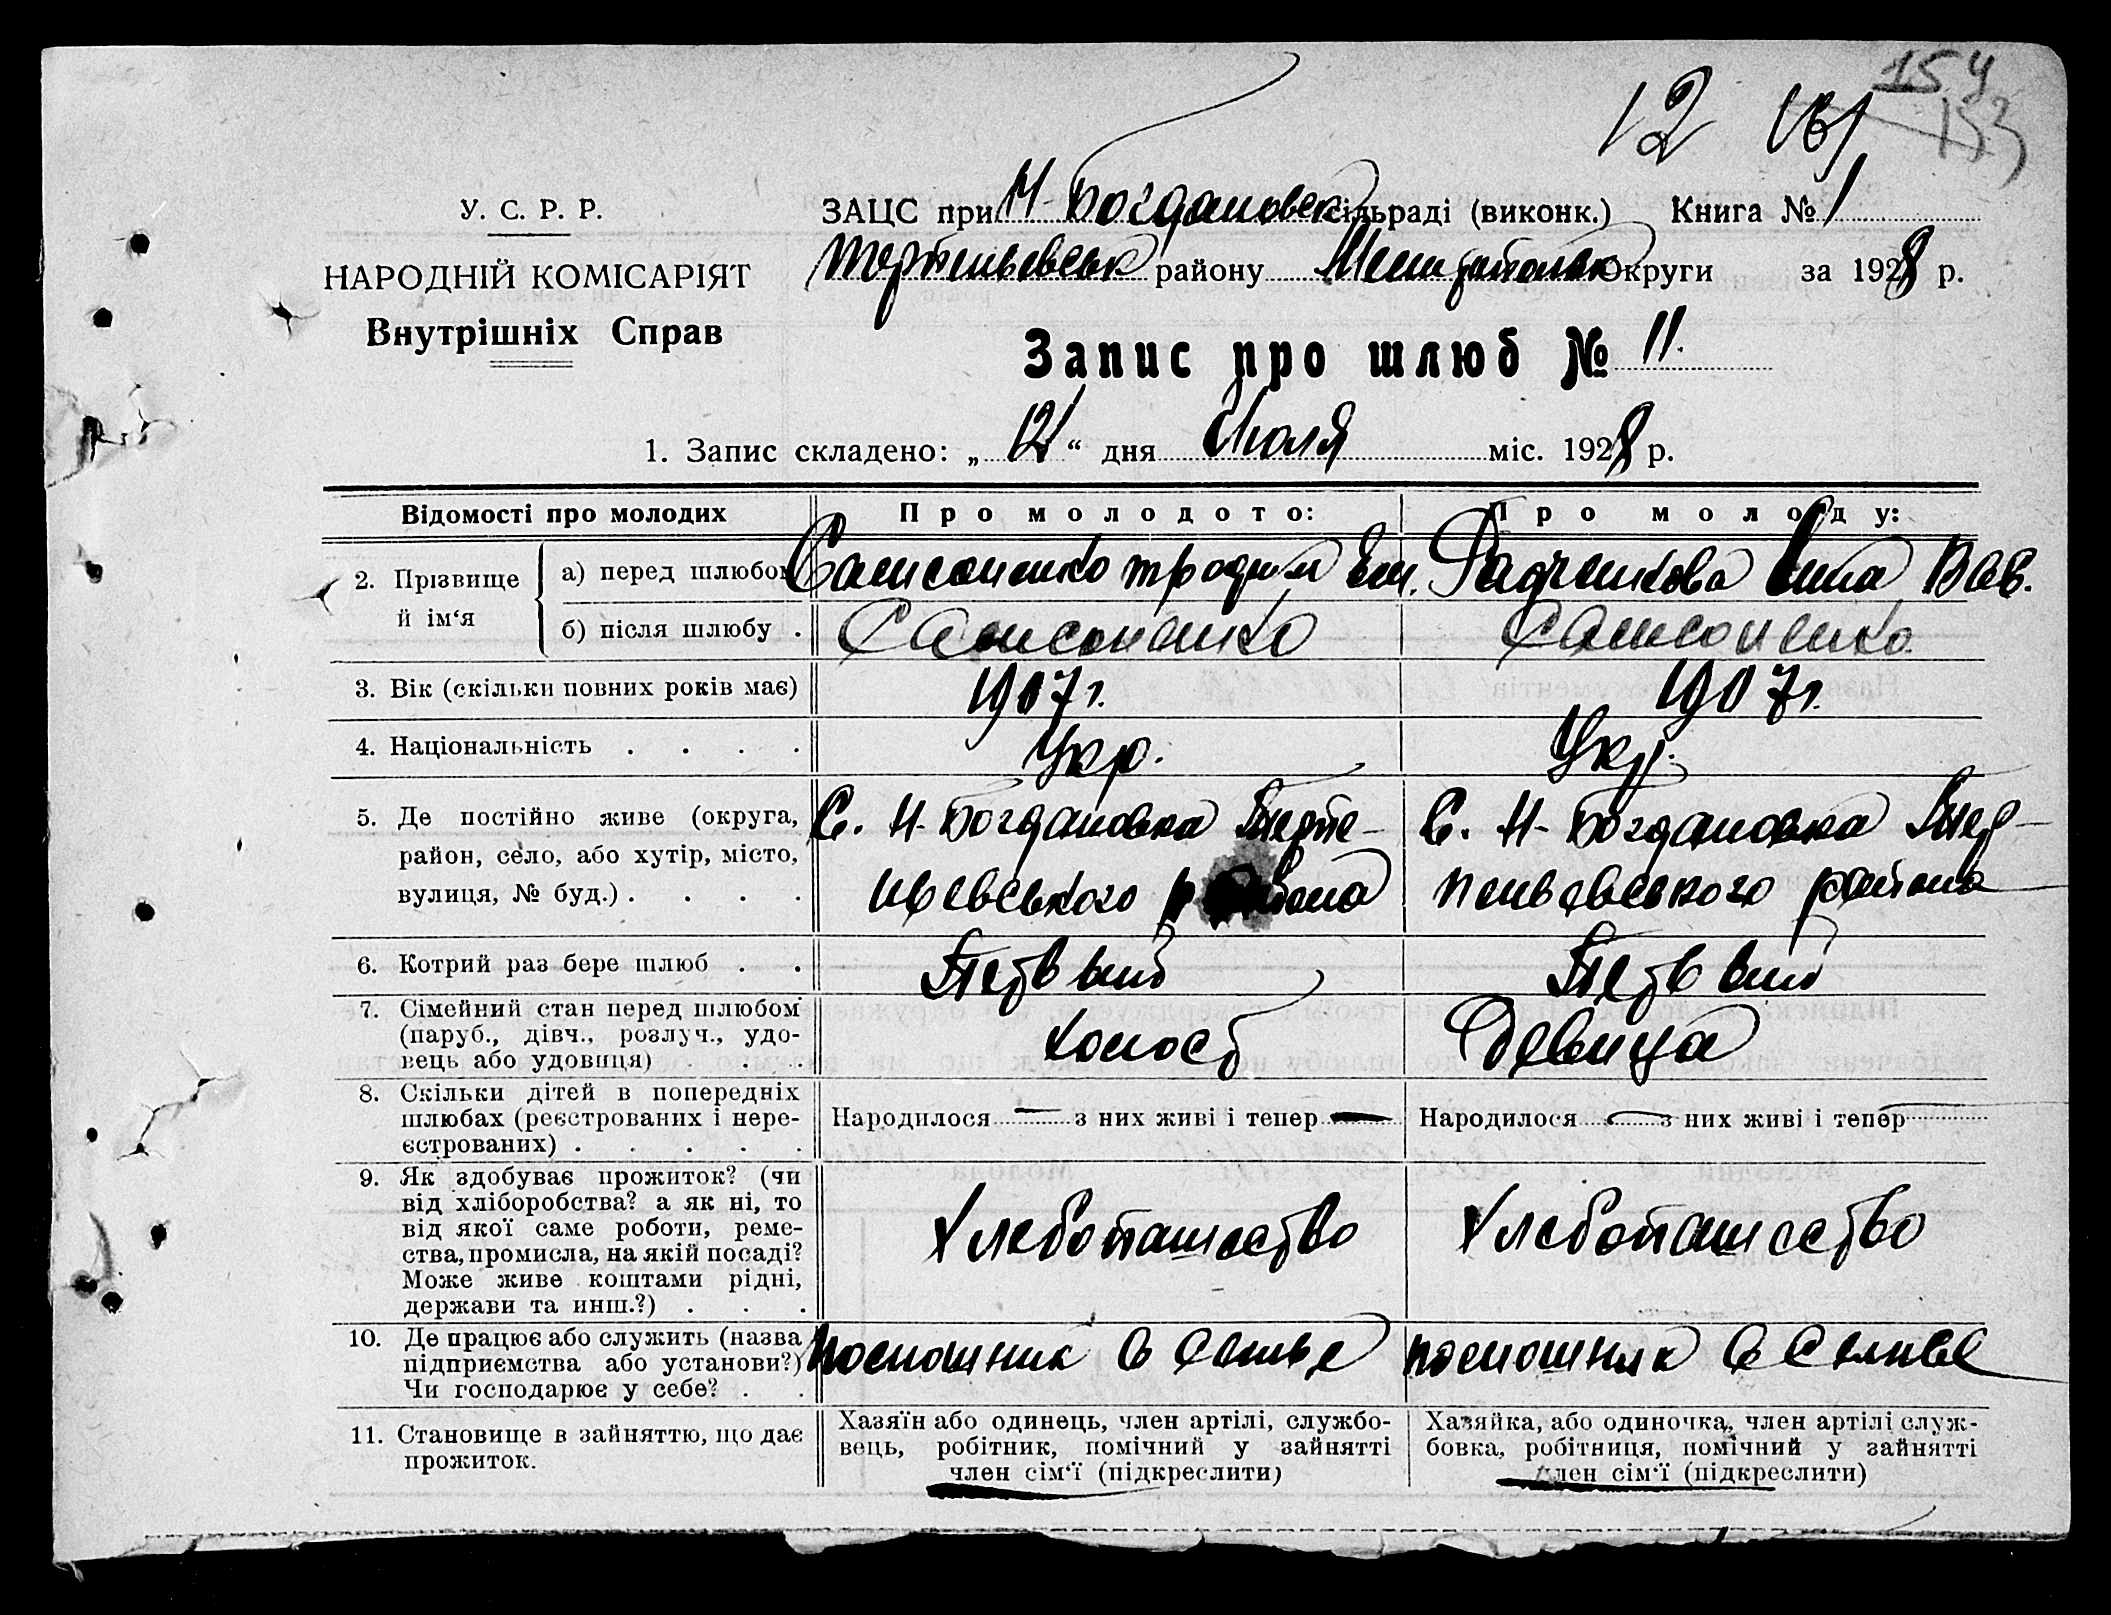 154
12 153
У. С. Р. Р.
НАРОДНІЙ КОМІСАРІЯТ
Внутрішніх Справ
ЗАЦС при Н-Богдановск сільраді (виконк.) Книга № 1
Терпеньевськ району Мелитопольск Округи за 1928 р.
Запис про шлюб № 11.
1. Запис складено: „ 12 “ дня Июля міс. 1928 р.
Відомості про молодих Про молодого: Про молоду:
2. Прізвище й ім‘я
а) перед шлюбом Самсоненко Трофим Ем. Радченкова Анна Вас.
б) після шлюбу . Самсоненко Самсоненко
3. Вік (скільки повних років має) 1907 г. 1907 г.
4. Національність . . . . Укр. Укр.
5. Де постійно живе (округа,
район, село, або хутір, місто,
вулиця, № буд.) . . . .
С. Н-Богдановка Терпе-
ньевського района
С. Н-Богдановка Тер-
пеньевського района
6. Котрий раз бере шлюб . . Первый Первый
7. Сімейний стан перед шлюбом
(паруб., дівч., розлуч., удо-
вець або удовиця) . . .
холост Девица
8. Скільки дітей в попередніх
шлюбах (реєстрованих і нере-
єстрованих) . . . . .
Народилося — з них живі і тепер — Народилося — з них живі і тепер —
9. Як здобуває прожиток? (чи
від хліборобства? а як ні, то
від якої саме роботи, реме-
ства, промисла, на якій посаді?
Може живе коштами рідні,
держави та инш.?) . . .
Хлебопашество Хлебопашество
10. Де працює або служить (назва
підприємства або установи?)
Чи господарює у себе? . .
помошник в семье помошник в семье
11. Становище в зайняттю, що дає
прожиток.
Хазяїн або одинець, член артілі, службо-
вець, робітник, помічний у зайнятті
член сім‘ї (підкреслити)
Хазяйка, або одиночка, член артілі служ-
бовка, робітниця, помічний у зайнятті
член сім‘ї (підкреслити)